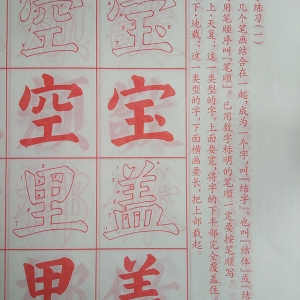 练习(一)
几个笔画结合在一起，成为一个字，叫『结字』。也叫『结体』或『结
用笔顺序叫『笔顺』。已用数字标明的笔顺一定要按笔顺写。
上·天复：这一类型的字，上面要宽，将字的下半部完全覆盖住
下·地载：这一类型的字，下面横画要长，把上部载起。
宝
宝
盖
盖
空
空
里
里